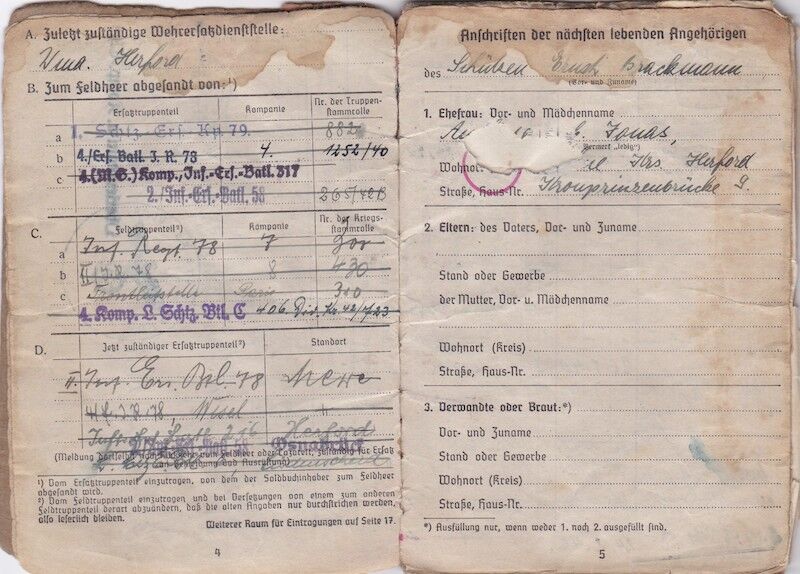 A. Zuletzt zuständige Wehrersatzdienststelle:
Herford
B. Zum Feldheer abgesandt von:¹)
Ersatztruppenteil
Kompanie
Nr. der Truppenstammrolle
a 1. Schtz.-Ers.-Kp 79. 882
b 4./Ers. Batl. J. R. 78 4. 1252/40
c 4.(M.G.) Komp., Inf.-Ers.-Batl. 317
2. Inf.-Ers.-Batl. 58
C.
Feldtruppenteil²)
Kompanie
Nr. der Kriegsstammrolle
a Inf. Regt. 78 7 300
b II/J.R. 78 8 430
c Frontleitstelle Paris 310
4. Komp. L. Schtz. Btl. C 406. Div.
D.
Jetzt zuständiger Ersatztruppenteil²)
Standort
Inf. Ers. Btl. 78
J.R. 78, Wesel
Herford
Osnabrück
(Meldung dortselbst nach Rückkehr vom Feldheer oder Lazarett, zuständig für Ersatz
an Bekleidung und Ausrüstung)
¹) Vom Ersatztruppenteil einzutragen, von dem der Soldbuchinhaber zum Feldheer
abgesandt wird.
²) Vom Feldtruppenteil einzutragen und bei Versetzungen von einem zum anderen
Feldtruppenteil derart abzuändern, daß die alten Angaben nur durchstrichen werden,
also leserlich bleiben.
Weiterer Raum für Eintragungen auf Seite 17.
4
Anschriften der nächsten lebenden Angehörigen
des Schützen Ernst Brackmann
(Vor- und Zuname)
1. Ehefrau: Vor- und Mädchenname
Jonas,
Vermerk „ledig")
Wohnort Krs Herford
Straße, Haus-Nr. Kronprinzenbrücke 9
2. Eltern: des Vaters, Vor- und Zuname
Stand oder Gewerbe
der Mutter, Vor- u. Mädchenname
Wohnort (Kreis)
Straße, Haus-Nr.
3. Verwandte oder Braut:*)
Vor- und Zuname
Stand oder Gewerbe
Wohnort (Kreis)
Straße, Haus-Nr.
*) Ausfüllung nur, wenn weder 1. noch 2. ausgefüllt sind.
5